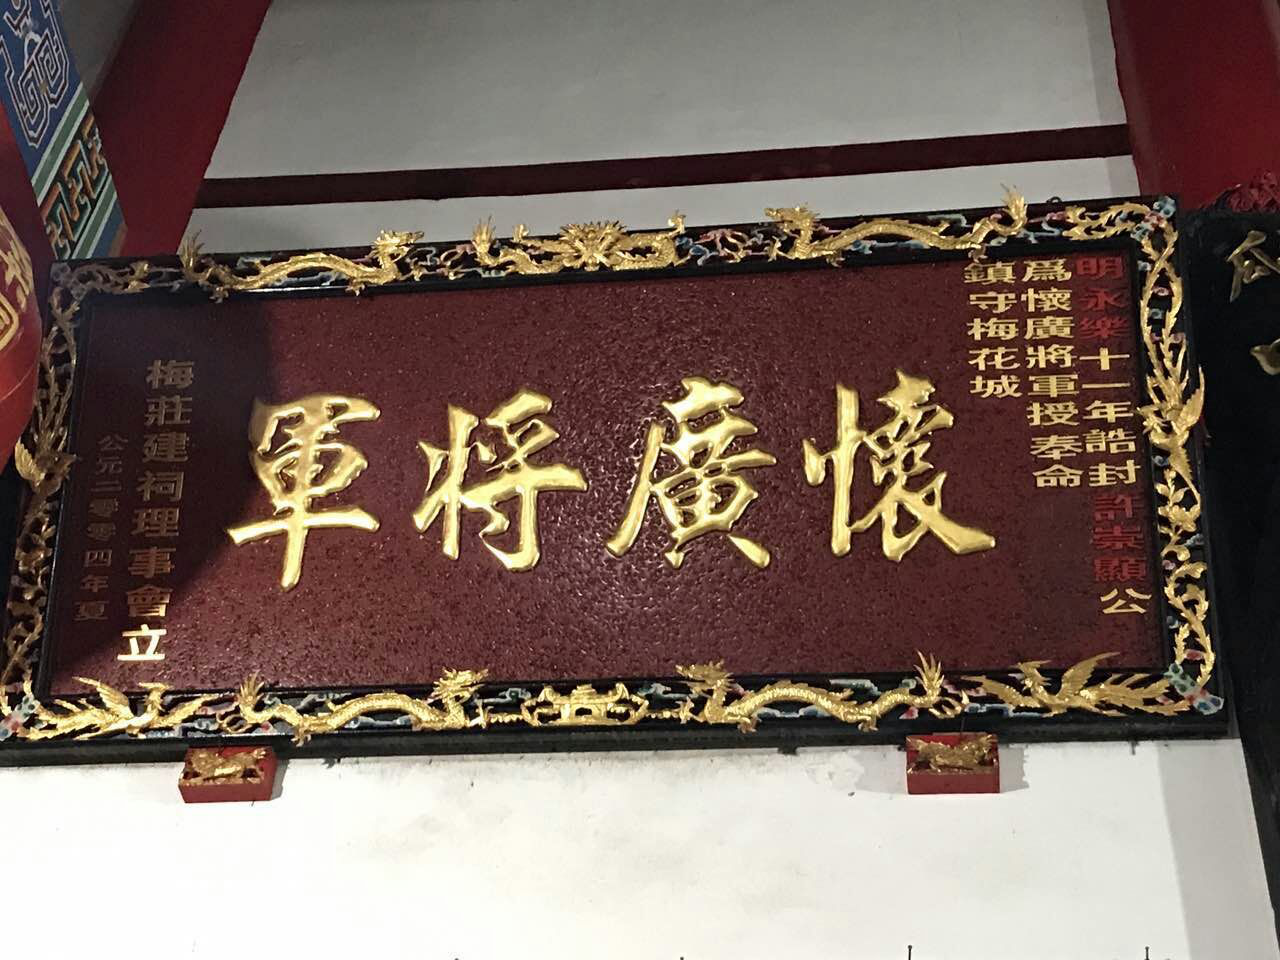 明永樂十一年誥封許崇顯公
爲懷廣將軍授奉命
鎮守梅花城
懷廣将軍
梅莊建祠理事會立
公元二零零四年夏